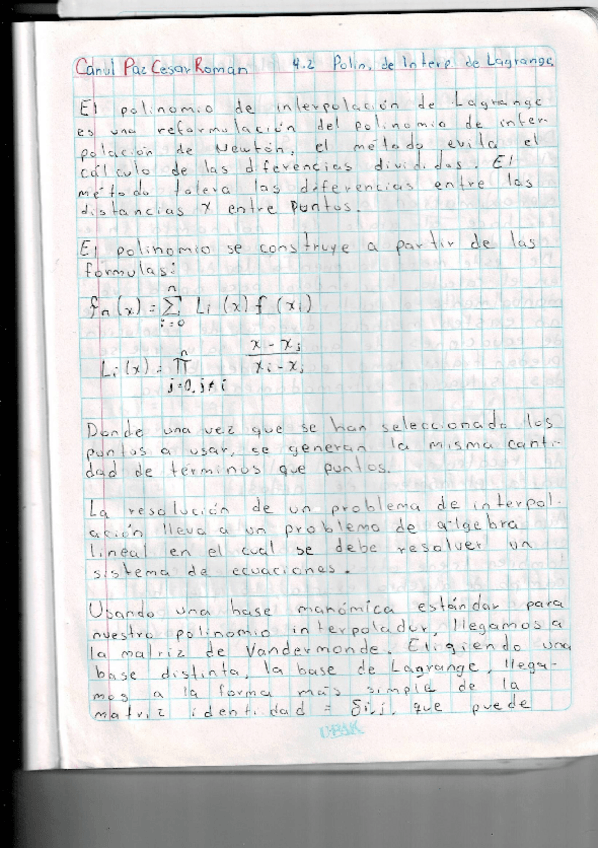 Canul Paz Cesar Román 4.2 Polin. de Interp de Lagrange
El polinomio de interpolación de Lagrange
es una reformulación del polinomio de inter-
polación de Newton, el método evita el
cálculo de las diferencias divididas. El
método tolera las diferencias entre las
distancias x entre puntos.
El polinomio se construye a partir de las
fórmulas:
fn(x) = Σ Li(x) f(xi)
n
i=0
Li(x) = Π (x - xj)/(xi - xj)
n
j=0, j≠i
Donde una vez que se han seleccionado los
puntos a usar, se generan la misma canti-
dad de términos que puntos.
La resolución de un problema de interpol-
ación lleva a un problema de algebra
lineal en el cual se debe resolver un
sistema de ecuaciones.
Usando una base monómica estándar para
nuestro polinomio interpolador, llegamos a
la matriz de Vandermonde. Eligiendo una
base distinta, la base de Lagrange, llega-
mos a la forma más simple de la
matriz identidad = δi,j, que puede